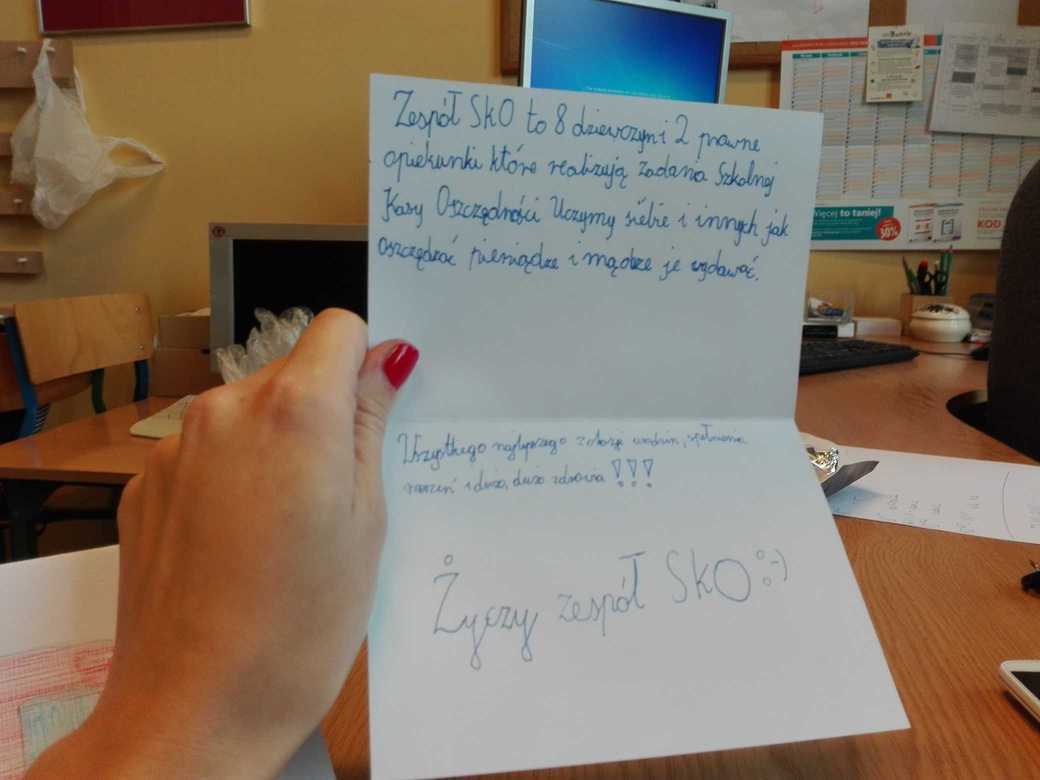 Zespół SKO to 8 dziewczyn i 2 prawne
opiekunki które realizują zadania Szkolnej
Kasy Oszczędności Uczymy siebie i innych jak
oszczędzać pieniądze i mądrze je wydawać.
Wszystkego najlepszego z okazji urodzin, spełnienia
marzeń i dużo, dużo zdrowia !!!
Życzy zespół SKO :-)
Więcej to taniej!
30%
KOD